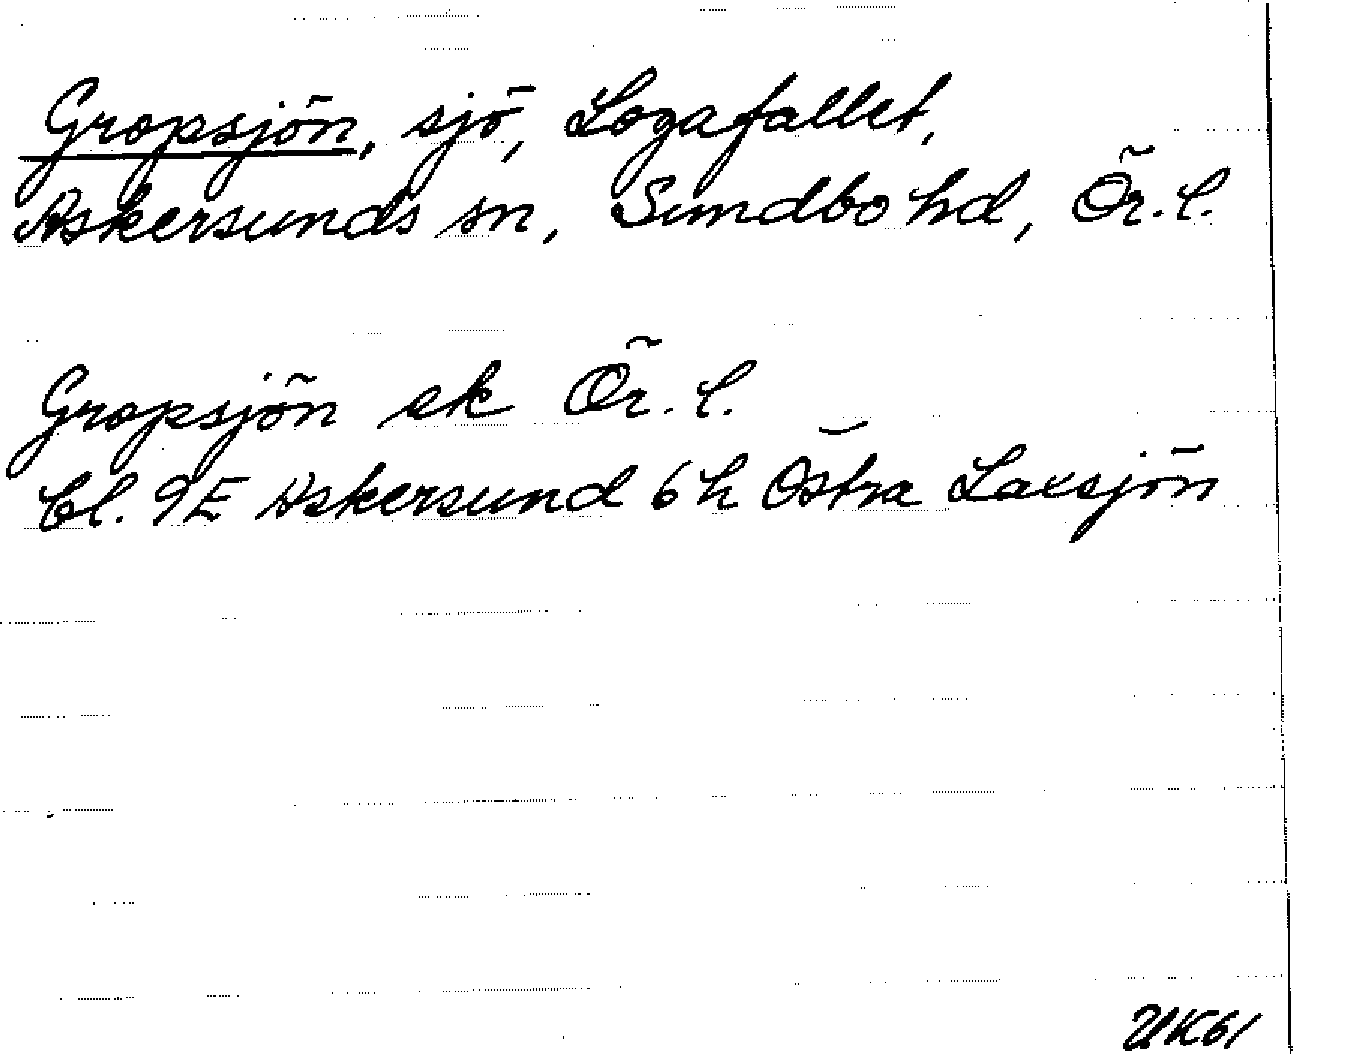 Gropsjön, sjö, Logafallet,
Askersunds sn, Sundbo hd, Ör. l.
Gropsjön ek Ör. l.
bl. 9E Askersund 6h Östra Laxsjön
UK61